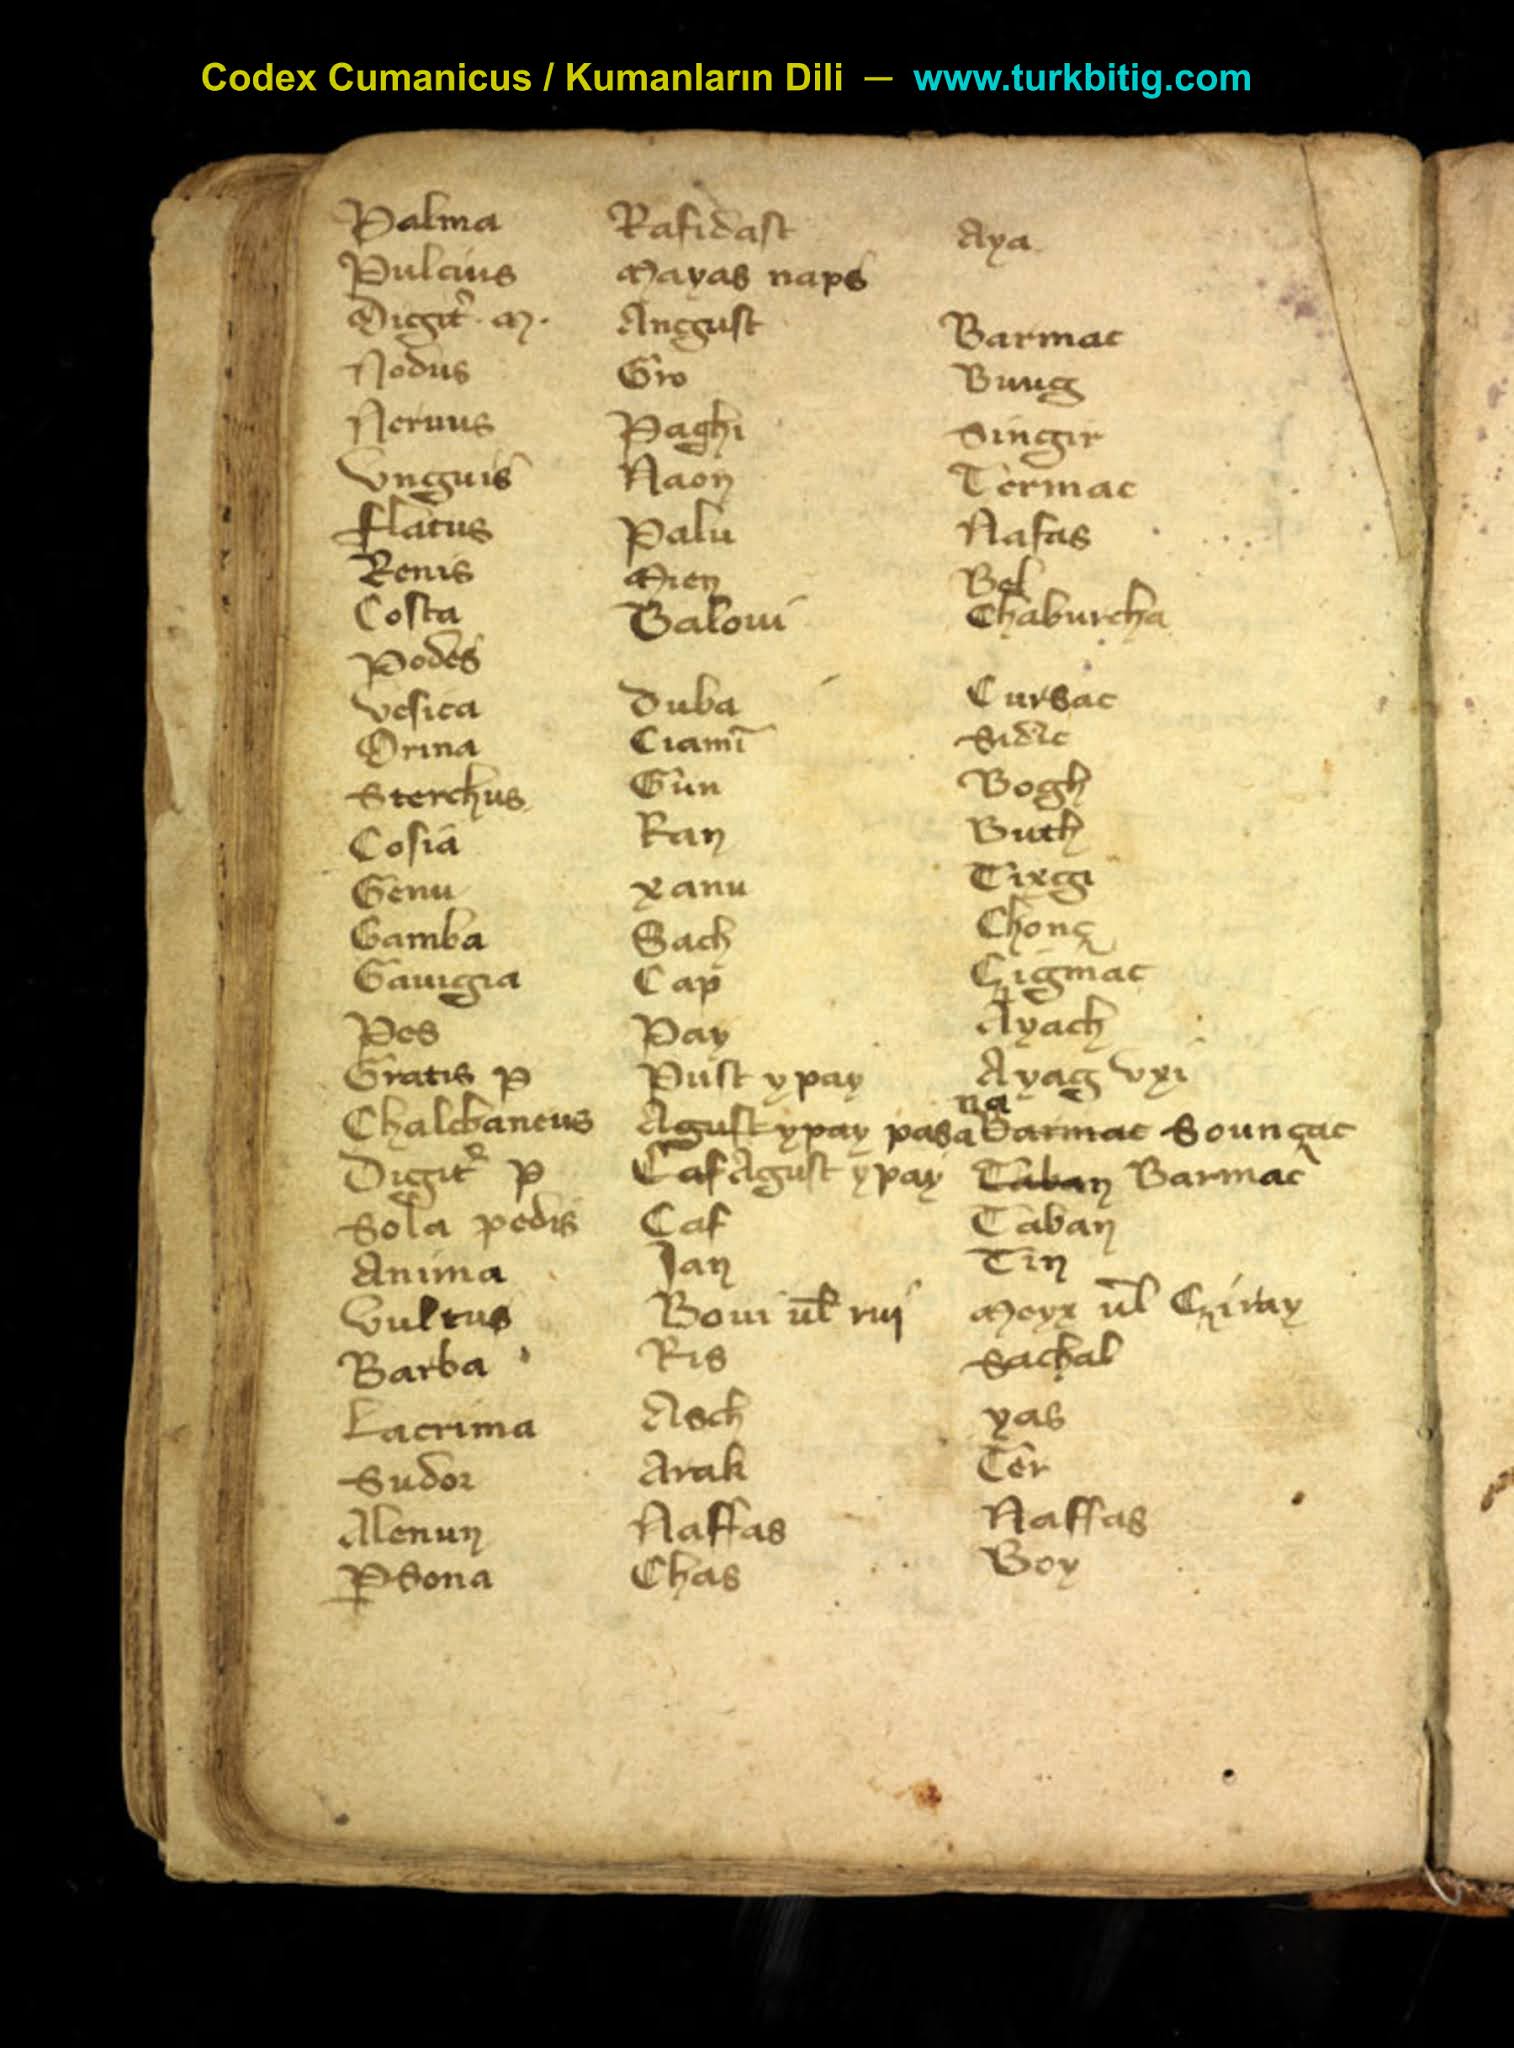 Codex Cumanicus / Kumanların Dili — www.turkbitig.com
Palma Rafidast Aya
Pulcius Mayas naps
Digit᷒ · M · Angust Barmac
Nodus Gro Buug
Neruus Paghi Singir
Vnguis Naon Termac
flatus Palu Nafas
Renis Mien Bel
Costa Baloui Chaburcha
Podes
Vesica Duba Cursac
Orina Ciamī Sidic
Sterchus Gun Bogh
Cosia Ran Buth
Genu xanu Tixgi
Gamba Sach Chonç
Gauigia Cap Çigmac
Pes Pay Ayach
Gratis p Pust y pay Ayag vxi
na
Chalcbaneus Agust y pay pasa barmac Sounçac
Digit᷒ p Caf Agust y pay Taban Barmac
Sola pedis Caf Taban
Anima Jan Tin
Vultus Boui ul̄ rui Meyx ul̄ Çiray
Barba Ris Sachal
Lacrima Asch yas
Sudor Arak Ter
Alenun Naffas Naffas
Psona Chas Boy